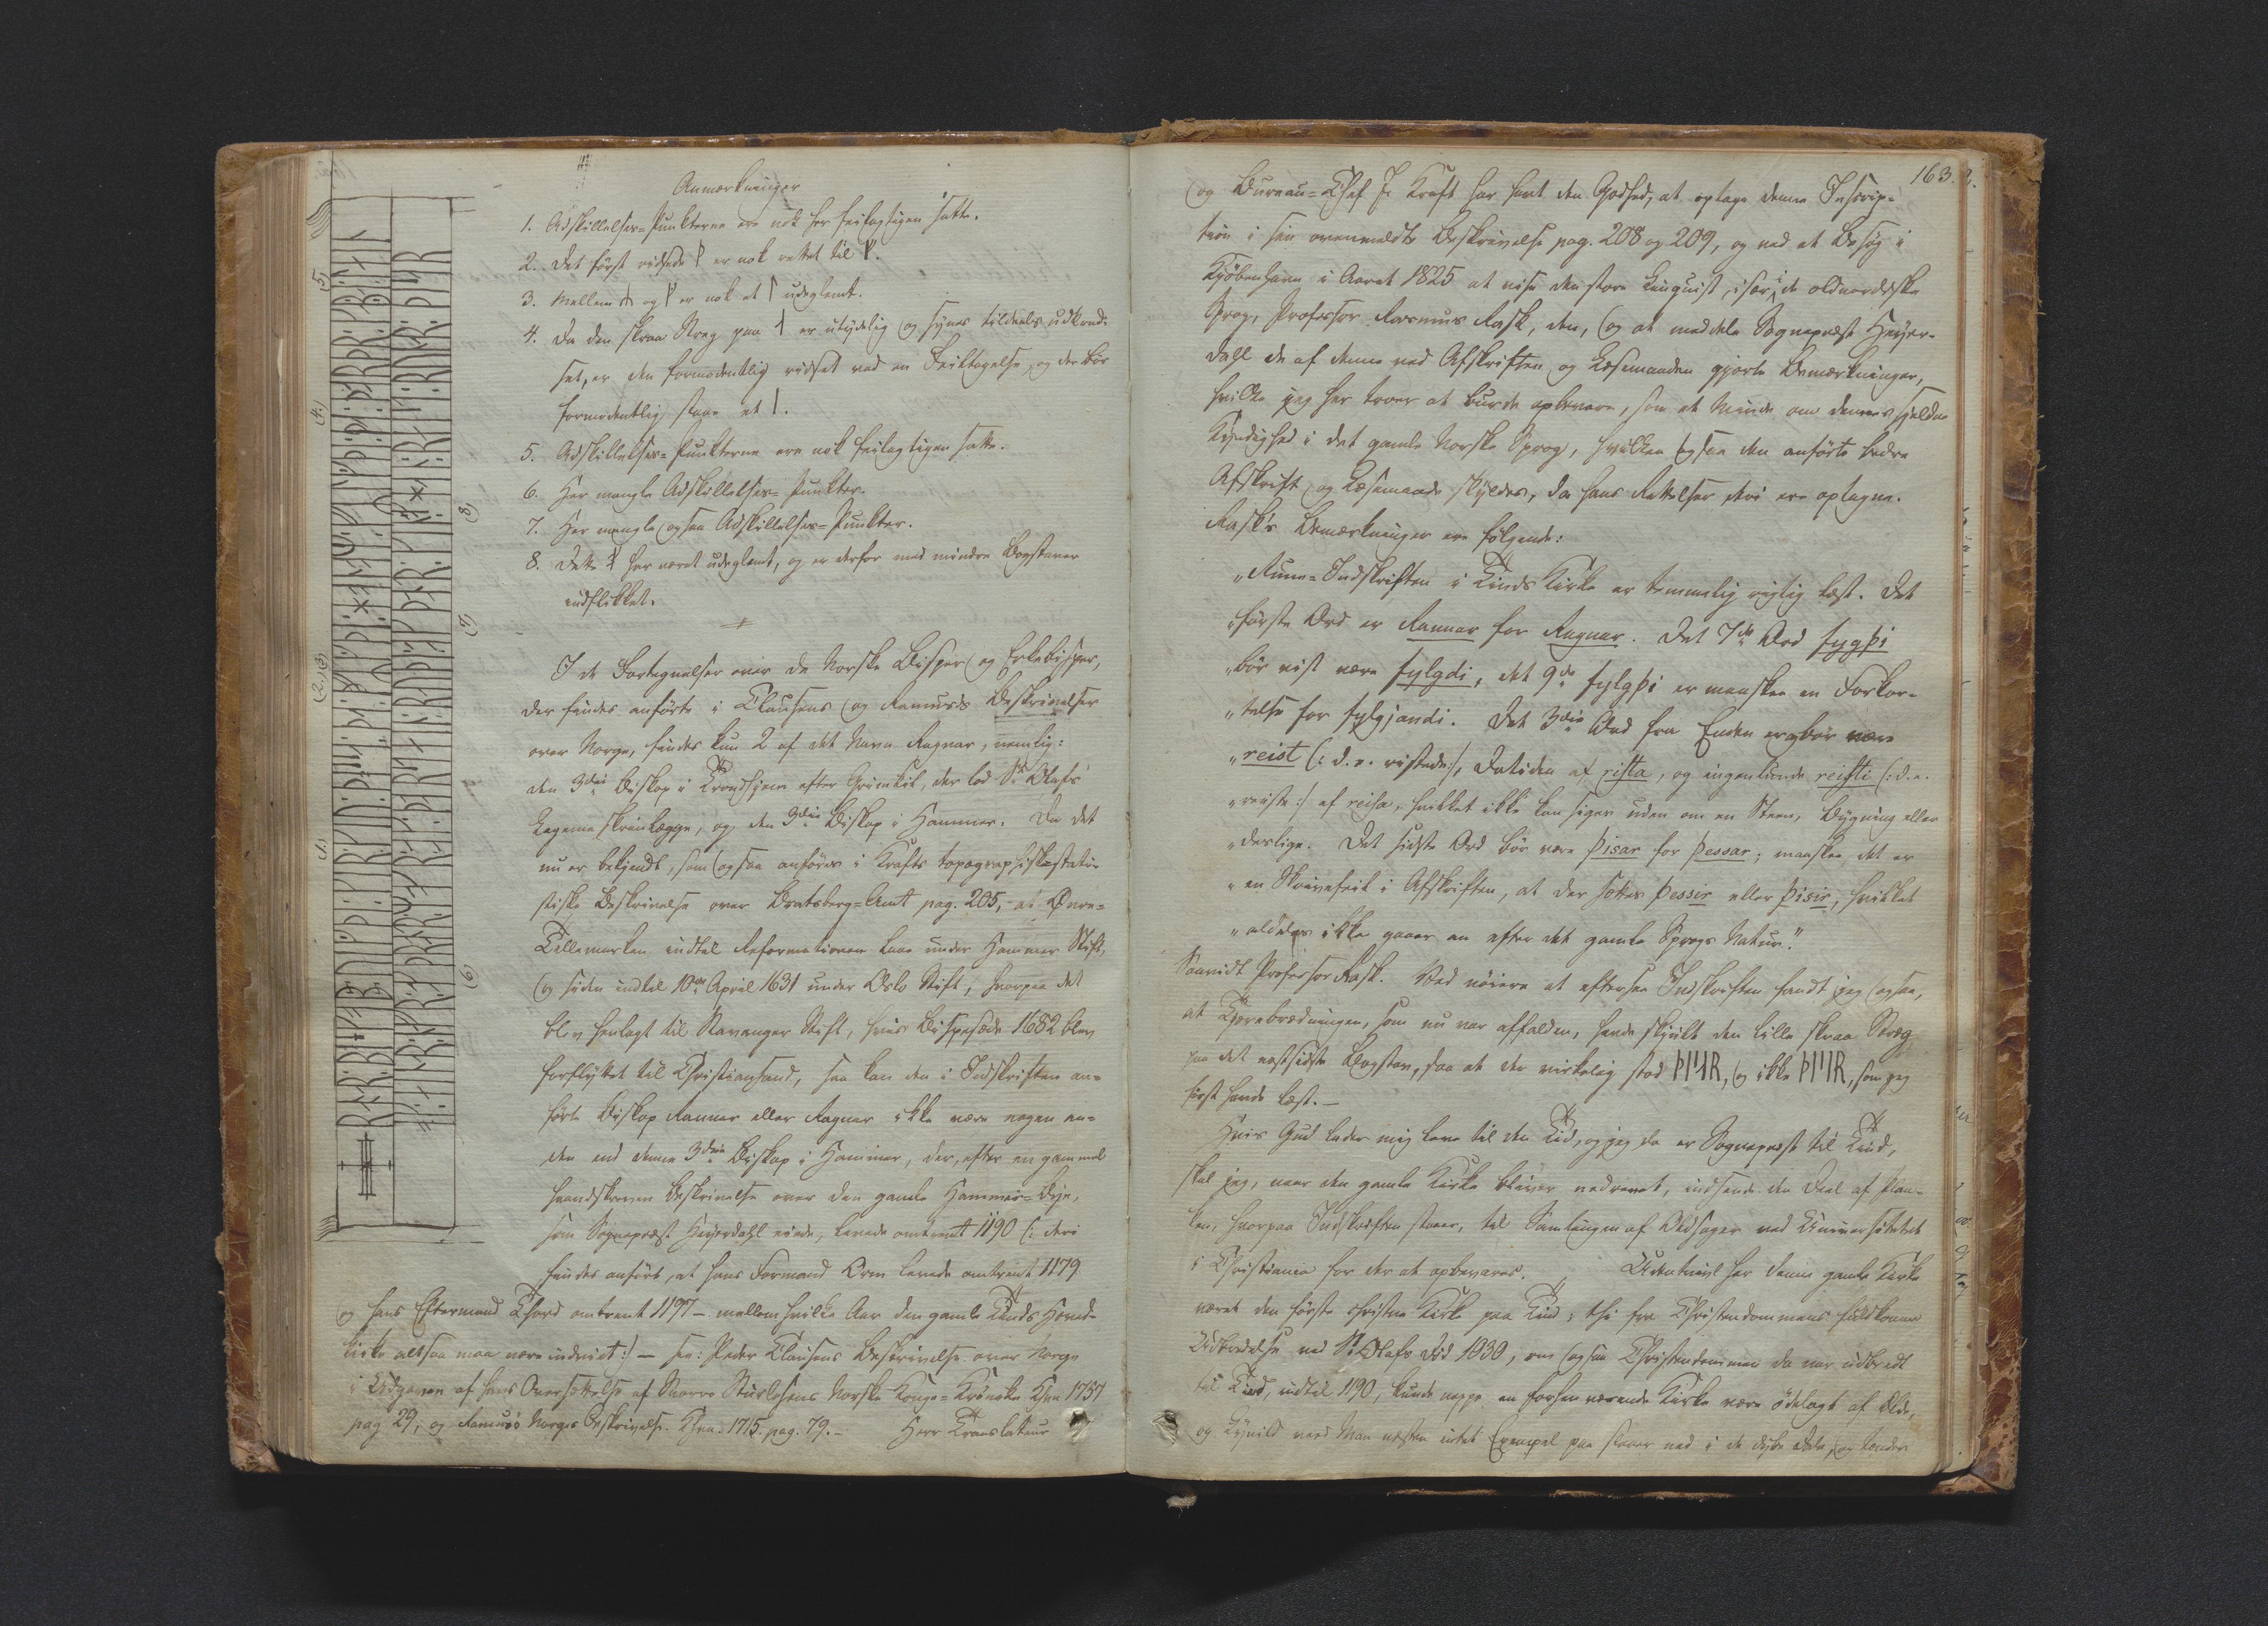 Anmærkninger
1. Adskillelses-Punkterne ere nok her feilagtigen satte.
2. Det först ridsede ᚹ er nok rettet til ᚠ.
3. Mellem og ᚠ er nok et ᛚ udeglemt.
4. Da den skraa Streg paa ᛆ er utydelig og synes tildeels
set, er den formodentlig ridset ved en Feiltagelse, og der bör
formodentlig staae et ᛁ.
5. Adskillelses-Punkterne ere nok feilagtigen satte.
6. Her mangle Adskillelses-Punkter.
7. Her mangle ogsaa Adskillelses-Punkter.
8. Dette har været udeglemt, og er derfor med mindre Bogstaver
indflikket.
I de Fortegnelser over de Norske Bisper og Erkebisper,
der findes anförte i Clausens og Ramus's Beskrivelser
over Norge, findes kun 2 af det Navn Ragnar, nemlig:
den 3die Biskop i Trondhjem efter Grimkil, der lod St Olafs
Legeme skrinlægge, og den 3die Biskop i Hammer. Da det
nu er bekjendt, som ogsaa anföres i Krafts topographisk-stati-
stiske Beskrivelse over Bratsberg-Amt pag. 205, at Övre-
Tellemarken indtil Reformationen laae under Hammer Stift,
og siden indtil 10de April 1631 under Oslo Stift, hvorpaa det
blev henlagt til Stavanger Stift, hvis Bispesæde 1682 blev
forflyttet til Christiansand, saa kan den i Indskriften an-
förte Biskop Rannar eller Ragnar ikke være nogen an-
den end denne 3die Biskop i Hammer, der, efter en gammel
haandskreven Beskrivelse over den gamle Hammer-Bye,
som Sognepræst Heyerdahl eiede, levede omtrent 1190 (: deri
findes anfört, at hans Formand Orm levede omtrent 1179
og hans Eftermand Thord omtrent 1197 – mellem hvilke Aar den gamle Kinds Hoved-
kirke altsaa maa være indviet :) – see: Peder Clausens Beskrivelse over Norge
i Udgaven af hans Oversættelse af Snorro Sturlesens Norske Konge-Krönike Khvn 1757
pag 29, og Ramus's Norges Beskrivelse. Khvn. 1715. pag. 79. – Herr Translateur
163.
og Bureau-Chef J. Kraft har havt den Godhed, at optage denne Inscrip-
tion i sin ovenmeldte Beskrivelse pag. 208 og 209, og ved et Besög i
Kjöbenhavn i Aaret 1825 at vise den store Linguist, især i de oldnordiske
Sprog, Professor Rasmus Rask, den, og at meddele Sognepræst Heyer-
dahl de af denne ved Afskriften og Læsemaaden gjorte Bemærkninger,
hvilke jeg her troer at burde opbevare, som et Minde om dennes sjeldne
Kyndighed i det gamle Norske Sprog, hvilken ogsaa den anförte bedre
Afskrift og Læsemaade skyldes, da hans Rettelser deri ere optagne.
Rask's Bemærkninger ere fölgende:
„Rune-Indskriften i Kinds Kirke er temmelig rigtig læst. Det
„förste Ord er Rannar for Ragnar. Det 7de Ord fygþi
„bör vist være fylgdi, det 9de fylgþi er maaskee en Forkor-
„telse for fylgjandi. Det 3die Ord fra Enden er og bör være
„reist (: d. e. ristede :), Datiden af rista, og ingenlunde reisti (: d. e.
„reiste :) af reisa, hvilket ikke kan siges uden om en Steen, Bygning eller
„deslige. Det sidste Ord bör være þisar for þessar; maaskee det er
„en Skrivefeil i Afskriften, at der sættes þessir eller þisir, hvilket
„aldeles ikke gaaer an efter det gamle Sprogs Natur."
Saavidt Professor Rask. Ved nöiere at eftersee Indskriften fandt jeg ogsaa,
at Tjærebrædningen, som nu var affalden, havde skjult den lille skraa Streg
paa det næstsidste Bogstav, saa at der virkelig stod ᚦᛁᛌᛆᚱ, og ikke ᚦᛁᛌᛁᚱ, som jeg
först havde læst. –
Hvis Gud lader mig leve til den Tid, og jeg da er Sognepræst til Kind,
skal jeg, naar den gamle Kirke bliver nedrevet, indsende den Deel af Plan-
ken, hvorpaa Indskriften staaer, til Samlingen af Oldsager ved Universitetet
i Christiania for der at opbevares. Udentvivl har denne gamle Kirke
været den förste christne Kirke paa Kind; thi fra Christendommens fuldkomne
Udbredelse ved St Olafs Död 1030, om ogsaa Christendommen da var udbredt
til Kind, indtil 1190, kunde neppe en forhen værende Kirke være ödelagt af Ælde,
og Lynild veed Man næsten intet Exempel paa slaaer ned i de dybe Dale, og tænder